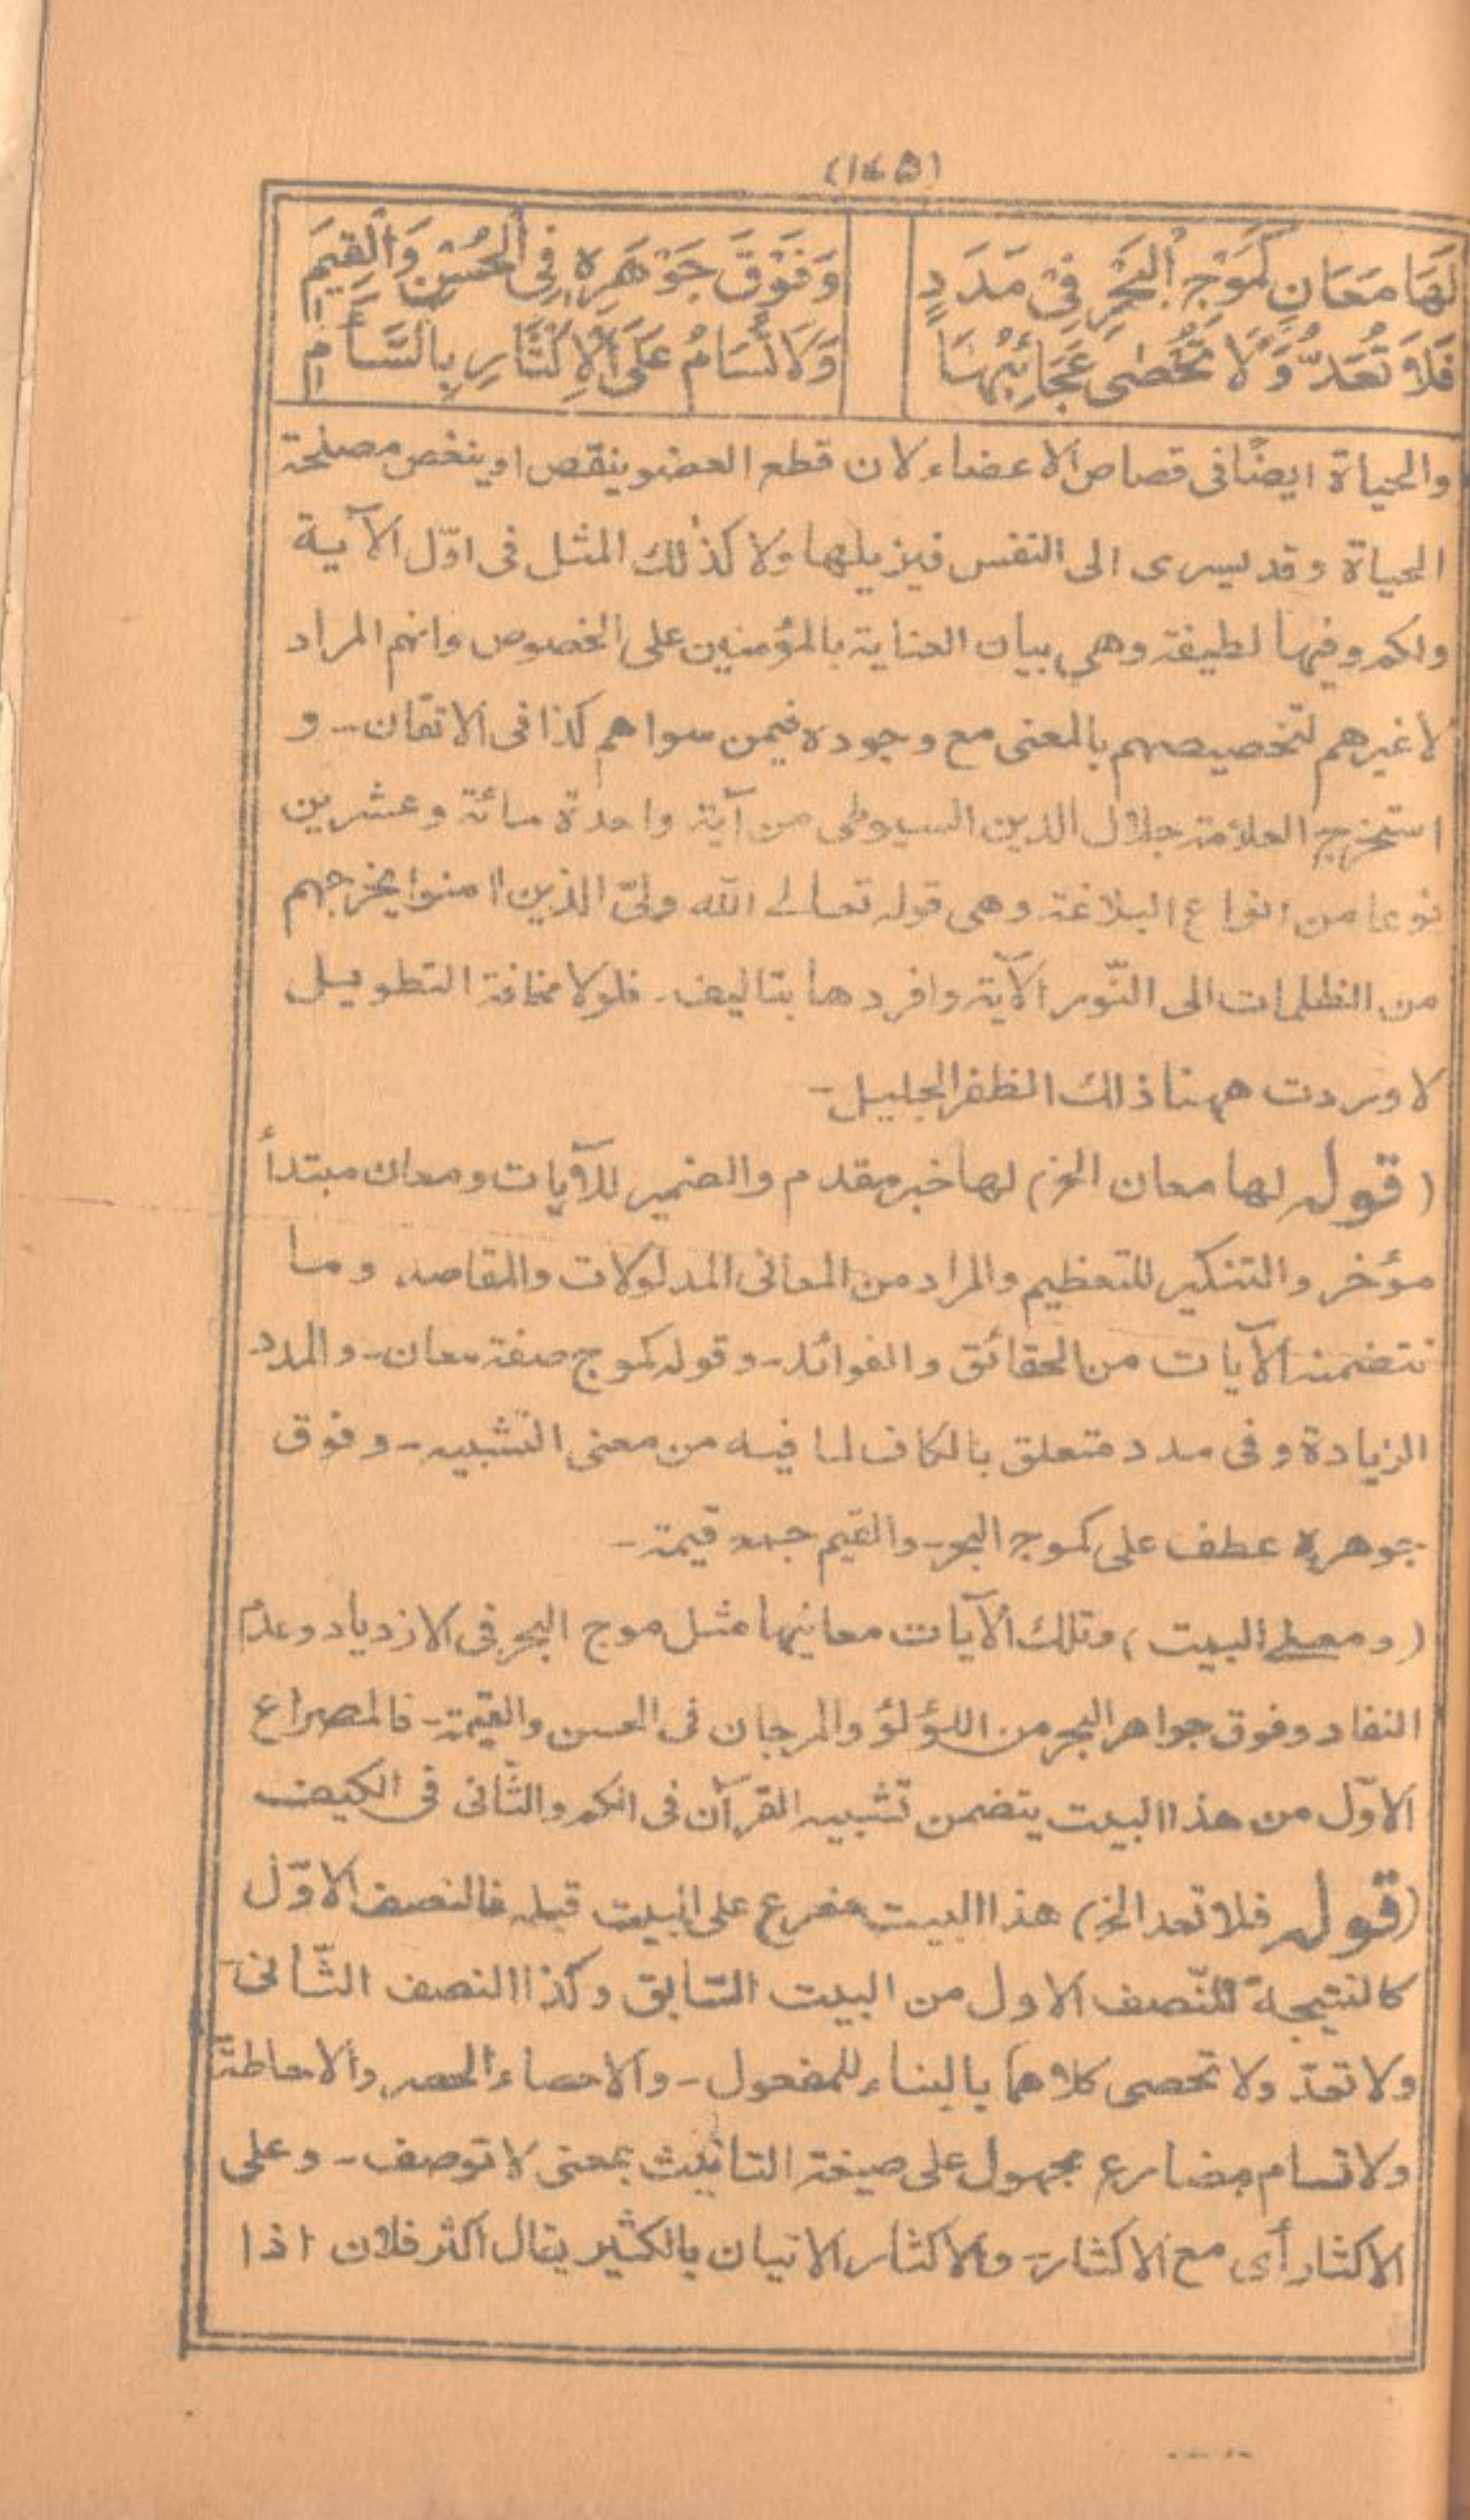 (١٤٥)
لَهَا مَعَانٍ كَمَوْجِ الْبَحْرِ فِيْ مَدَدٍ وَفَوْقَ جَوْهَرِهٖ فِي الْحُسْنِ وَالْقِيَمِ
فَلَا تُعَدُّ وَلَا تُحْصٰى عَجَائِبُهَا وَلَا تُسَامُ عَلَى الْاِكْثَارِ بِالسَّأَمِ
والحياة ايضًا فى قصاص الاعضاء لان قطع العضو ينقص او ينغص مصلحة
الحياة وقد يسرى الى النفس فيزيلها ولا كذٰلك المثل فى اوّل الآية
ولكم وفيها لطيفة وهي بيان العناية بالمؤمنين على الخصوص وانهم المراد
لا غيرهم لتخصيصهم بالمعنى مع وجوده فيمن سواهم كذا فى الاتقان - و
استخرج العلامة جلال الدين السيوطى من آية واحدة مائة وعشرين
نوعا من انواع البلاغة وهى قوله تعالے الله ولىّ الذين اٰمنوا يخرجهم
من الظلمات الى النّور الآية وافردها بتاليف - فلولا مخافة التطويل
لاوردت ههنا ذلك الظفر الجليل -
(قوله لها معان الخ) لها خبر مقدم والضمير للآيات ومعان مبتدأ
مؤخر والتنكير للتعظيم والمراد من المعانى المدلولات والمقاصد وما
تتضمنه الآيات من الحقائق والفوائد - وقوله كموج صفة معان - والمدد
الزيادة وفى مدد متعلق بالكاف لما فيه من معنى التشبيه - وفوق
جوهره عطف على كموج البحر - والقيم جمع قيمة -
(ومعنى البيت) وتلك الآيات معانيها مثل موج البحر فى الازدياد وعدم
النفاد وفوق جواهر البحر من اللؤلؤ والمرجان فى الحسن والقيمة - فالمصراع
الاوّل من هذا البيت يتضمن تشبيه القرآن فى الكم والثّانى فى الكيف
(قوله فلا تعد الخ) هذا البيت مفرع على البيت قبله فالنصف الاوّل
كالنتيجة للنّصف الاول من البيت السّابق وكذا النصف الثّانى -
ولا تعدّ ولا تحصى كلاهما بالبناء للمفعول - والاحصاء الحصر والاحاطة
ولا تسام مضارع مجهول على صيغة التانيث بمعنى لا توصف - وعلى
الاكثار أى مع الاكثار - والاكثار الاتيان بالكثير يقال اكثر فلان اذا